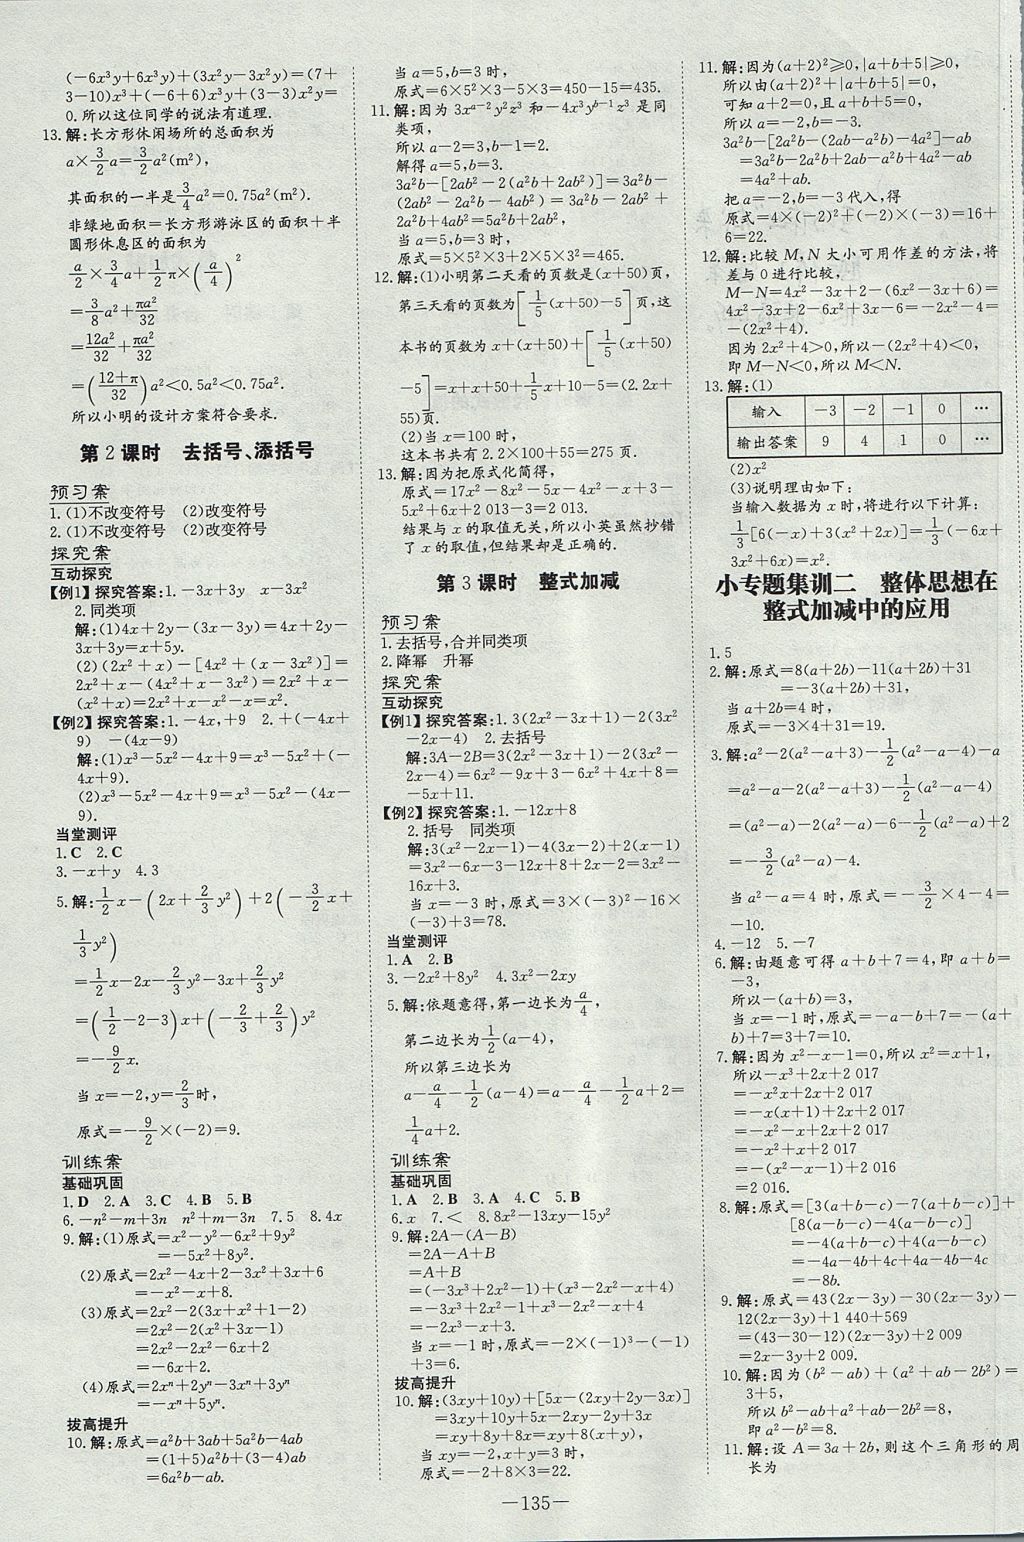 (-6x³y+6x³y)+(3x²y-3x²y)=(7+
3-10)x³+(-6+6)x³y+(3-3)x²y=
0.所以这位同学的说法有道理.
13.解:长方形休闲场所的总面积为
a×3/2a=3/2a²(m²),
其面积的一半是3/4a²=0.75a²(m²).
非绿地面积=长方形游泳区的面积+半
圆形休息区的面积为
a/2×3/4a+1/2π×(a/4)²
=3/8a²+πa²/32
=12a²/32+πa²/32
=((12+π)/32)a²<0.5a²<0.75a².
所以小明的设计方案符合要求.
第2课时 去括号、添括号
预习案
1.(1)不改变符号 (2)改变符号
2.(1)不改变符号 (2)改变符号
探究案
互动探究
【例1】探究答案:1.-3x+3y x-3x²
2.同类项
解:(1)4x+2y-(3x-3y)=4x+2y-
3x+3y=x+5y.
(2)(2x²+x)-[4x²+(x-3x²)]=
2x²+x-(4x²+x-3x²)=2x²+x-
(x²+x)=2x²+x-x²-x=x².
【例2】探究答案:1.-4x,+9 2.+(-4x+
9) -(4x-9)
解:(1)x³-5x²-4x+9=x³-5x²+(-
4x+9).
(2)x³-5x²-4x+9=x³-5x²-(4x-
9).
当堂测评
1.C 2.C
3.-x+y 4.3
5.解:1/2x-(2x+2/3y²)+2(-3/2x+
1/3y²)
=1/2x-2x-2/3y²-3x+2/3y²
=(1/2-2-3)x+(-2/3+2/3)y²
=-9/2x.
当x=-2,y=2/3时,
原式=-9/2×(-2)=9.
训练案
基础巩固
1.D 2.A 3.C 4.B 5.B
6.-n²-m+3n n²+m-3n 7.5 8.4x
9.解:(1)原式=x²-y²-6x²+9y²
=-5x²+8y².
(2)原式=2x²-4x+2-3x²+3x+6
=-x²-x+8.
(3)原式=2x²-2(3x+x²+1-2)
=2x²-2(x²+3x-1)
=2x²-2x²-6x+2
=-6x+2.
(4)原式=2xⁿ+2yⁿ-3xⁿ+3yⁿ
=-xⁿ+5yⁿ.
拔高提升
10.解:原式=a²b+3ab+5a²b-4ab
=(1+5)a²b+(3-4)ab
=6a²b-ab.
当a=5,b=3时,
原式=6×5²×3-5×3=450-15=435.
11.解:因为3xᵃ⁻²y²z³和-4x³yᵇ⁻¹z³是同
类项,
所以a-2=3,b-1=2.
解得a=5,b=3.
3a²b-[2ab²-2(a²b+2ab²)]=3a²b-
(2ab²-2a²b-4ab²)=3a²b-2ab²+
2a²b+4ab²=5a²b+2ab²,
当a=5,b=3时,
原式=5×5²×3+2×5×3²=465.
12.解:(1)小明第二天看的页数是(x+50)页,
第三天看的页数为[1/5(x+50)-5]页,这
本书的页数为x+(x+50)+[1/5(x+50)
-5]=x+x+50+1/5x+10-5=(2.2x+
55)页.
(2)当x=100时,
这本书共有2.2×100+55=275页.
13.解:因为把原式化简得,
原式=17x²-8x²-5x-4x²-x+3-
5x²+6x+2 013-3=2 013.
结果与x的取值无关,所以小英虽然抄错
了x的取值,但结果却是正确的.
第3课时 整式加减
预习案
1.去括号,合并同类项
2.降幂 升幂
探究案
互动探究
【例1】探究答案:1.3(2x²-3x+1)-2(3x²
-2x-4) 2.去括号
解:3A-2B=3(2x²-3x+1)-2(3x²-
2x-4)=6x²-9x+3-6x²+4x+8=
-5x+11.
【例2】探究答案:1.-12x+8
2.括号 同类项
解:3(x²-2x-1)-4(3x-2)+2(x-1)
=3x²-6x-3-12x+8+2x-2=3x²-
16x+3.
当x=-3时,原式=3×(-3)²-16×
(-3)+3=78.
当堂测评
1.A 2.B
3.-2x²+8y² 4.3x²-2xy
5.解:依题意得,第一边长为a/4,
第二边长为1/2(a-4),
所以第三边长为
a-a/4-1/2(a-4)=a-a/4-1/2a+2=
1/4a+2.
训练案
基础巩固
1.A 2.B 3.C 4.B 5.B
6.x 7.< 8.8x²-13xy-15y²
9.解:2A-(A-B)
=2A-A+B
=A+B
=(-3x³+2x²-1)+(x³-2x²-x+4)
=-3x³+2x²-1+x³-2x²-x+4
=-2x³-x+3.
当x=-1时,原式=-2×(-1)³-(-1)
+3=6.
拔高提升
10.解:(3xy+10y)+[5x-(2xy+2y-3x)]
=3xy+10y+5x-2xy-2y+3x
=xy+8y+8x=xy+8(x+y),
当xy=-2,x+y=3时,
原式=-2+8×3=22.
11.解:因为(a+2)²≥0,|a+b+5|≥0,
所以由(a+2)²+|a+b+5|=0,
可知a+2=0,且a+b+5=0,
所以a=-2,b=-3.
3a²b-[2a²b-(2ab-a²b)-4a²]-ab
=3a²b-2a²b+2ab-a²b+4a²-ab
=4a²+ab.
把a=-2,b=-3代入,得
原式=4×(-2)²+(-2)×(-3)=16+
6=22.
12.解:比较M,N大小可用作差的方法,将
差与0进行比较,
M-N=4x²-3x+2-(6x²-3x+6)=
4x²-3x+2-6x²+3x-6=-2x²-4=
-(2x²+4).
因为2x²+4>0,所以-(2x²+4)<0,
即M-N<0,所以M<N.
13.解:(1)
输入 -3 -2 -1 0 …
输出答案 9 4 1 0 …
(2)x²
(3)说明理由如下:
当输入数据为x时,将进行以下计算:
1/3[6(-x)+3(x²+2x)]=1/3(-6x+
3x²+6x)=x².
小专题集训二 整体思想在
整式加减中的应用
1.5
2.解:原式=8(a+2b)-11(a+2b)+31
=-3(a+2b)+31,
当a+2b=4时,
原式=-3×4+31=19.
3.解:a²-2(a²-a+3)-1/2(a²-a-4)-a
=a²-a-2(a²-a+3)-1/2(a²-a-4)
=(a²-a)-2(a²-a)-6-1/2(a²-a)+2
=-3/2(a²-a)-4.
当a²-a=4时,原式=-3/2×4-4=
-10.
4.-12 5.-7
6.解:由题意可得a+b+7=4,即a+b=
-3,
所以-(a+b)=3,
当x=-1时,原式=-a-b+7=-(a+
b)+7=3+7=10.
7.解:因为x²-x-1=0,所以x²=x+1,
所以-x³+2x+2 017
=-x²x+2x+2 017
=-x(x+1)+2x+2 017
=-x²-x+2x+2 017
=-x²+x+2 017
=-(x²-x-1)+2 016
=2 016.
8.解:原式=[3(a+b-c)-7(a+b-c)]+
[8(a-b-c)-4(a-b-c)]
=-4(a+b-c)+4(a-b-c)
=-4a-4b+4c+4a-4b-4c
=-8b.
9.解:原式=43(2x-3y)-30(2x-3y)-
12(2x-3y)+1 440+569
=(43-30-12)(2x-3y)+2 009
=2x-3y+2 009.
10.解:因为(b²-ab)+(a²+ab-2b²)=
3+5,
所以b²-ab+a²+ab-2b²=8,
即a²-b²=8.
11.解:设A=3a+2b,则这个三角形的周
长为
—135—